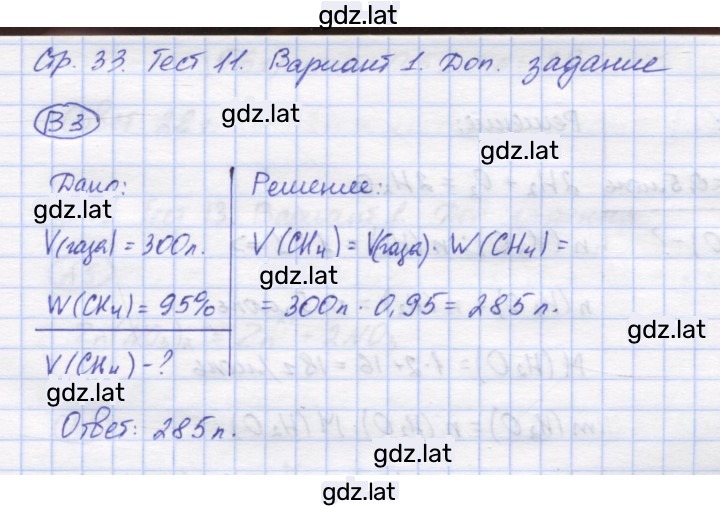 gdz.lat
Стр. 33. Тест 11. Вариант 1. Доп. задание
В3
gdz.lat
gdz.lat
Дано:
Решение:
gdz.lat
V(газа) = 300л.
V(CH₄) = V(газа) · W(CH₄) =
gdz.lat
W(CH₄) = 95%
= 300л · 0,95 = 285 л.
gdz.lat
V(CH₄) - ?
gdz.lat
Ответ: 285л.
gdz.lat
gdz.lat